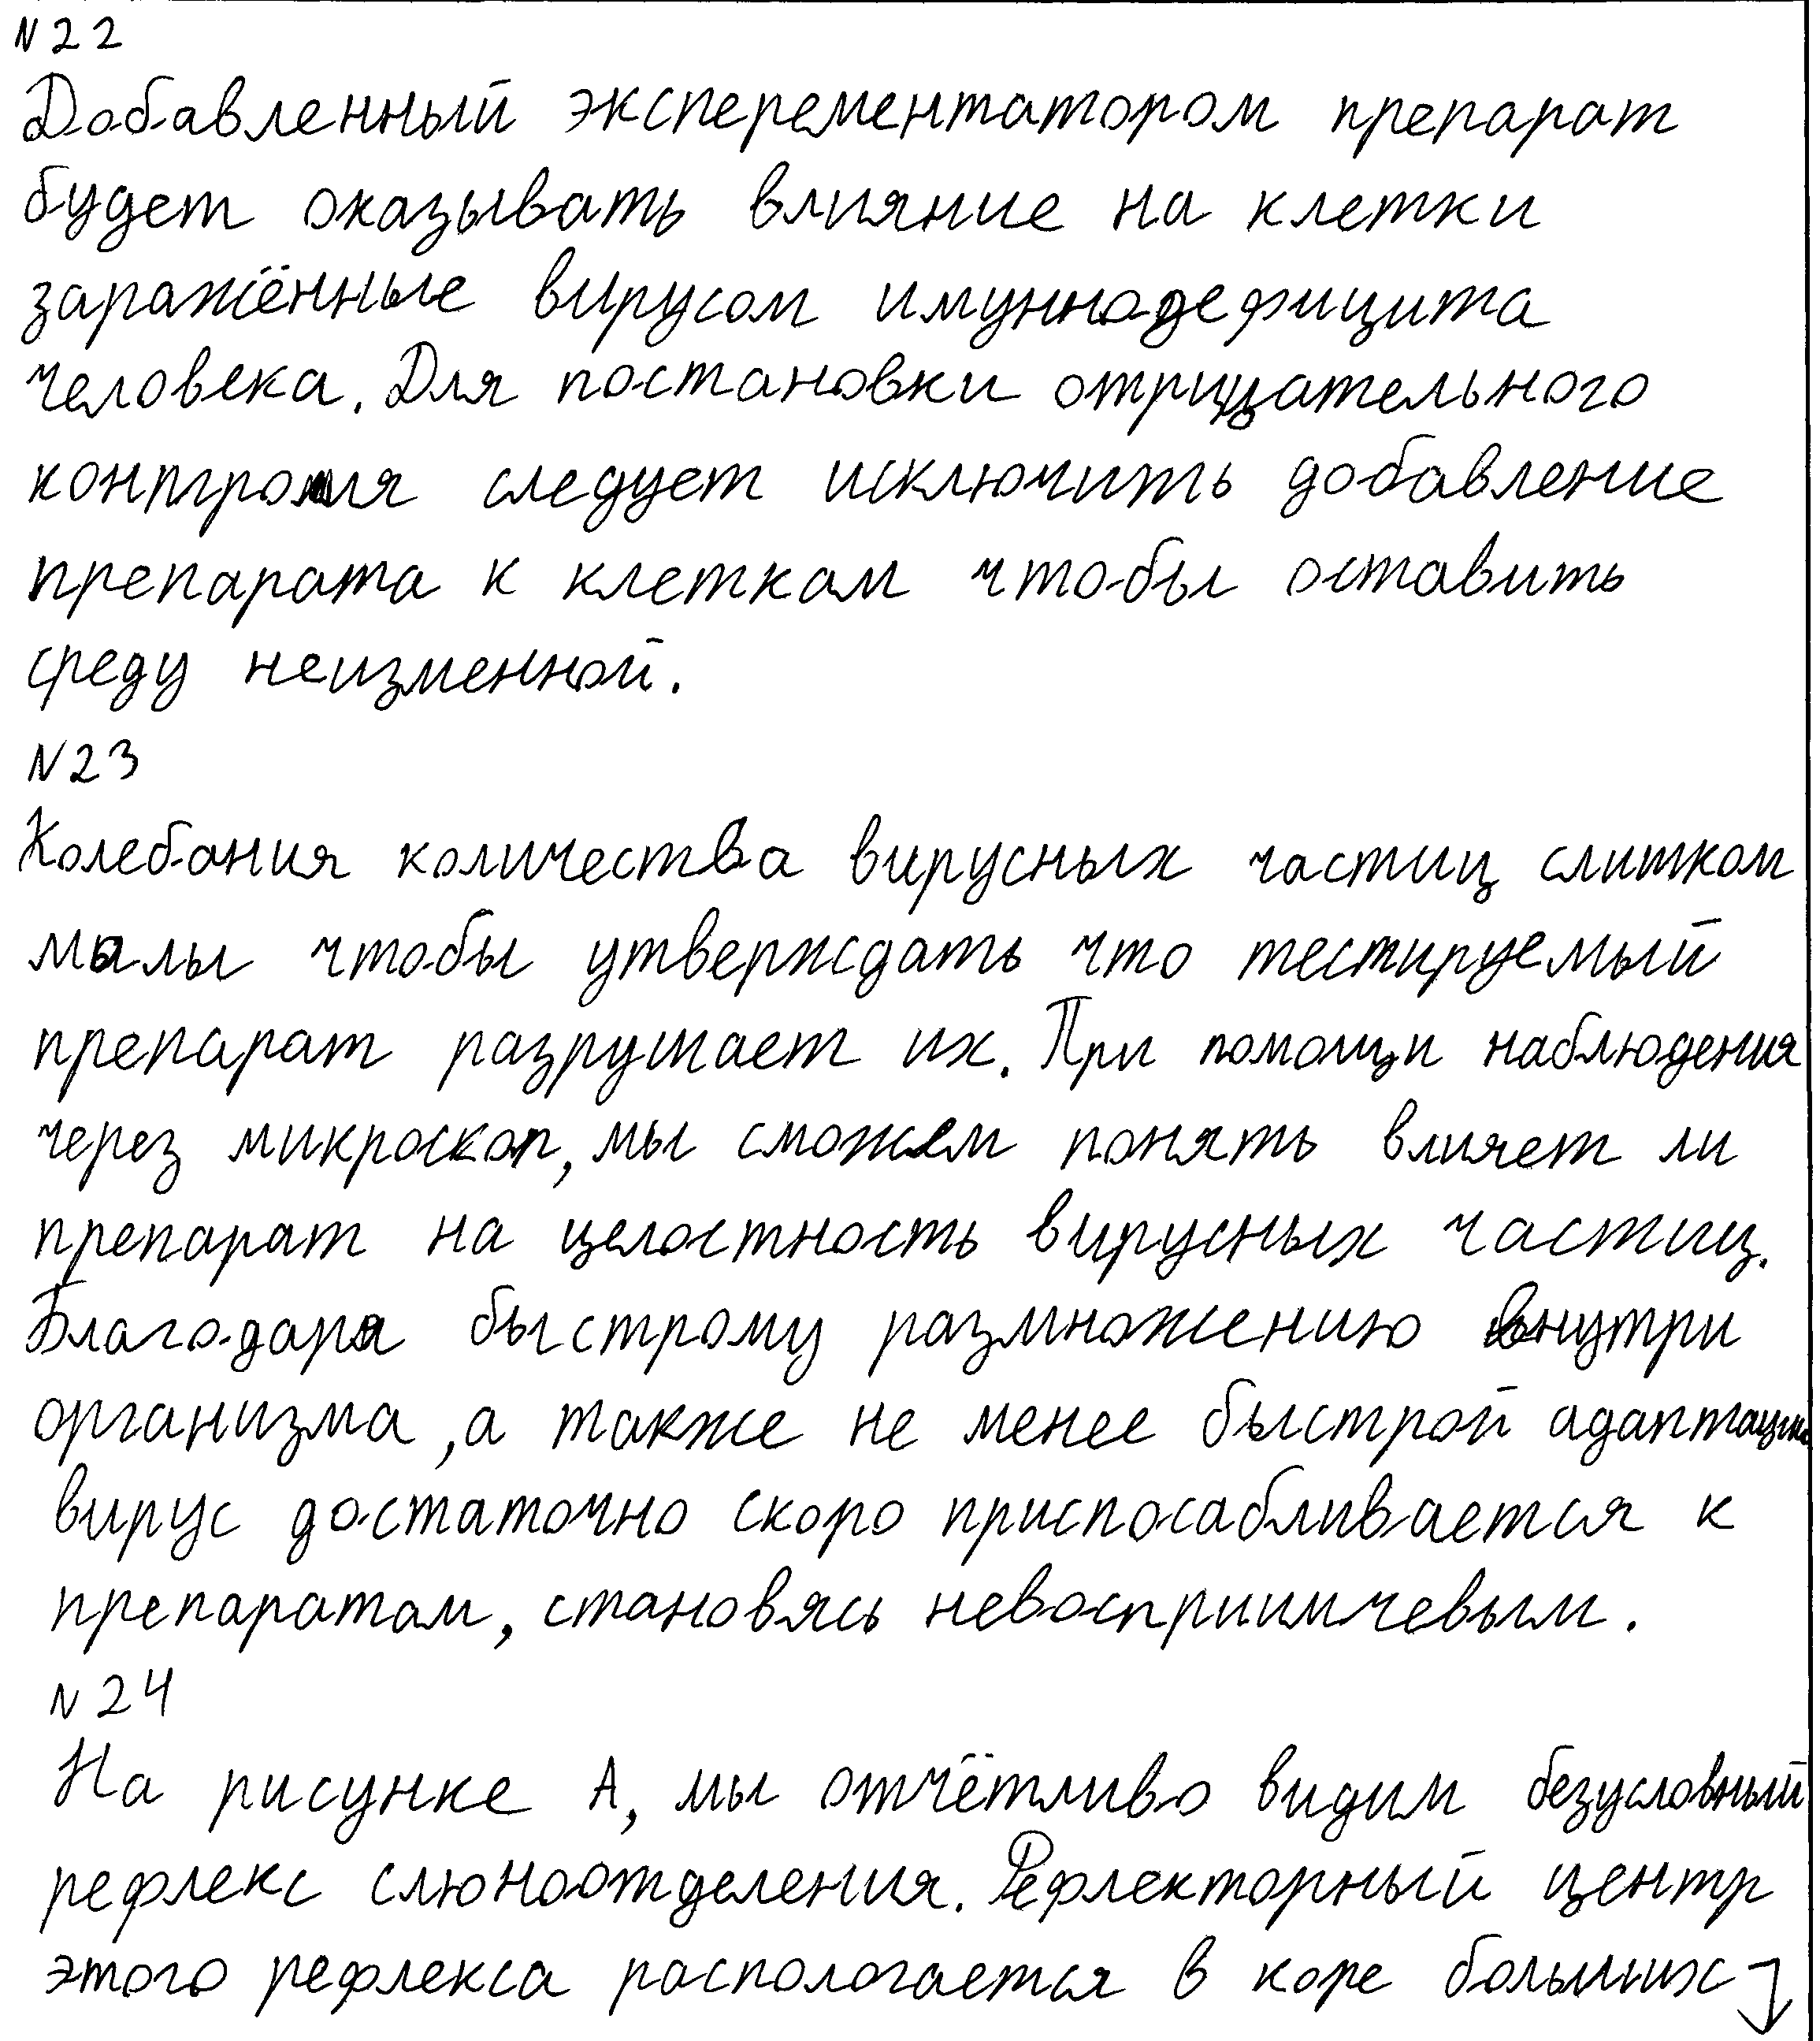 N 22
Добавленный эксперементатором препарат
будет оказывать влияние на клетки
заражённые вирусом имуннодефицита
человека. Для постановки отрицательного
контроля следует исключить добавление
препарата к клеткам чтобы оставить
среду неизменной.
N 23
Колебания количества вирусных частиц слишком
малы чтобы утверждать что тестируемый
препарат разрушает их. При помощи наблюдения
через микроскоп, мы сможем понять влияет ли
препарат на целостность вирусных частиц.
Благодаря быстрому размножению внутри
организма, а также не менее быстрой адаптации
вирус достаточно скоро приспосабливается к
препаратам, становясь невосприимчевым.
N 24
На рисунке А, мы отчётливо видим безусловный
рефлекс слюноотделения. Рефлекторный центр
этого рефлекса распологается в коре больших